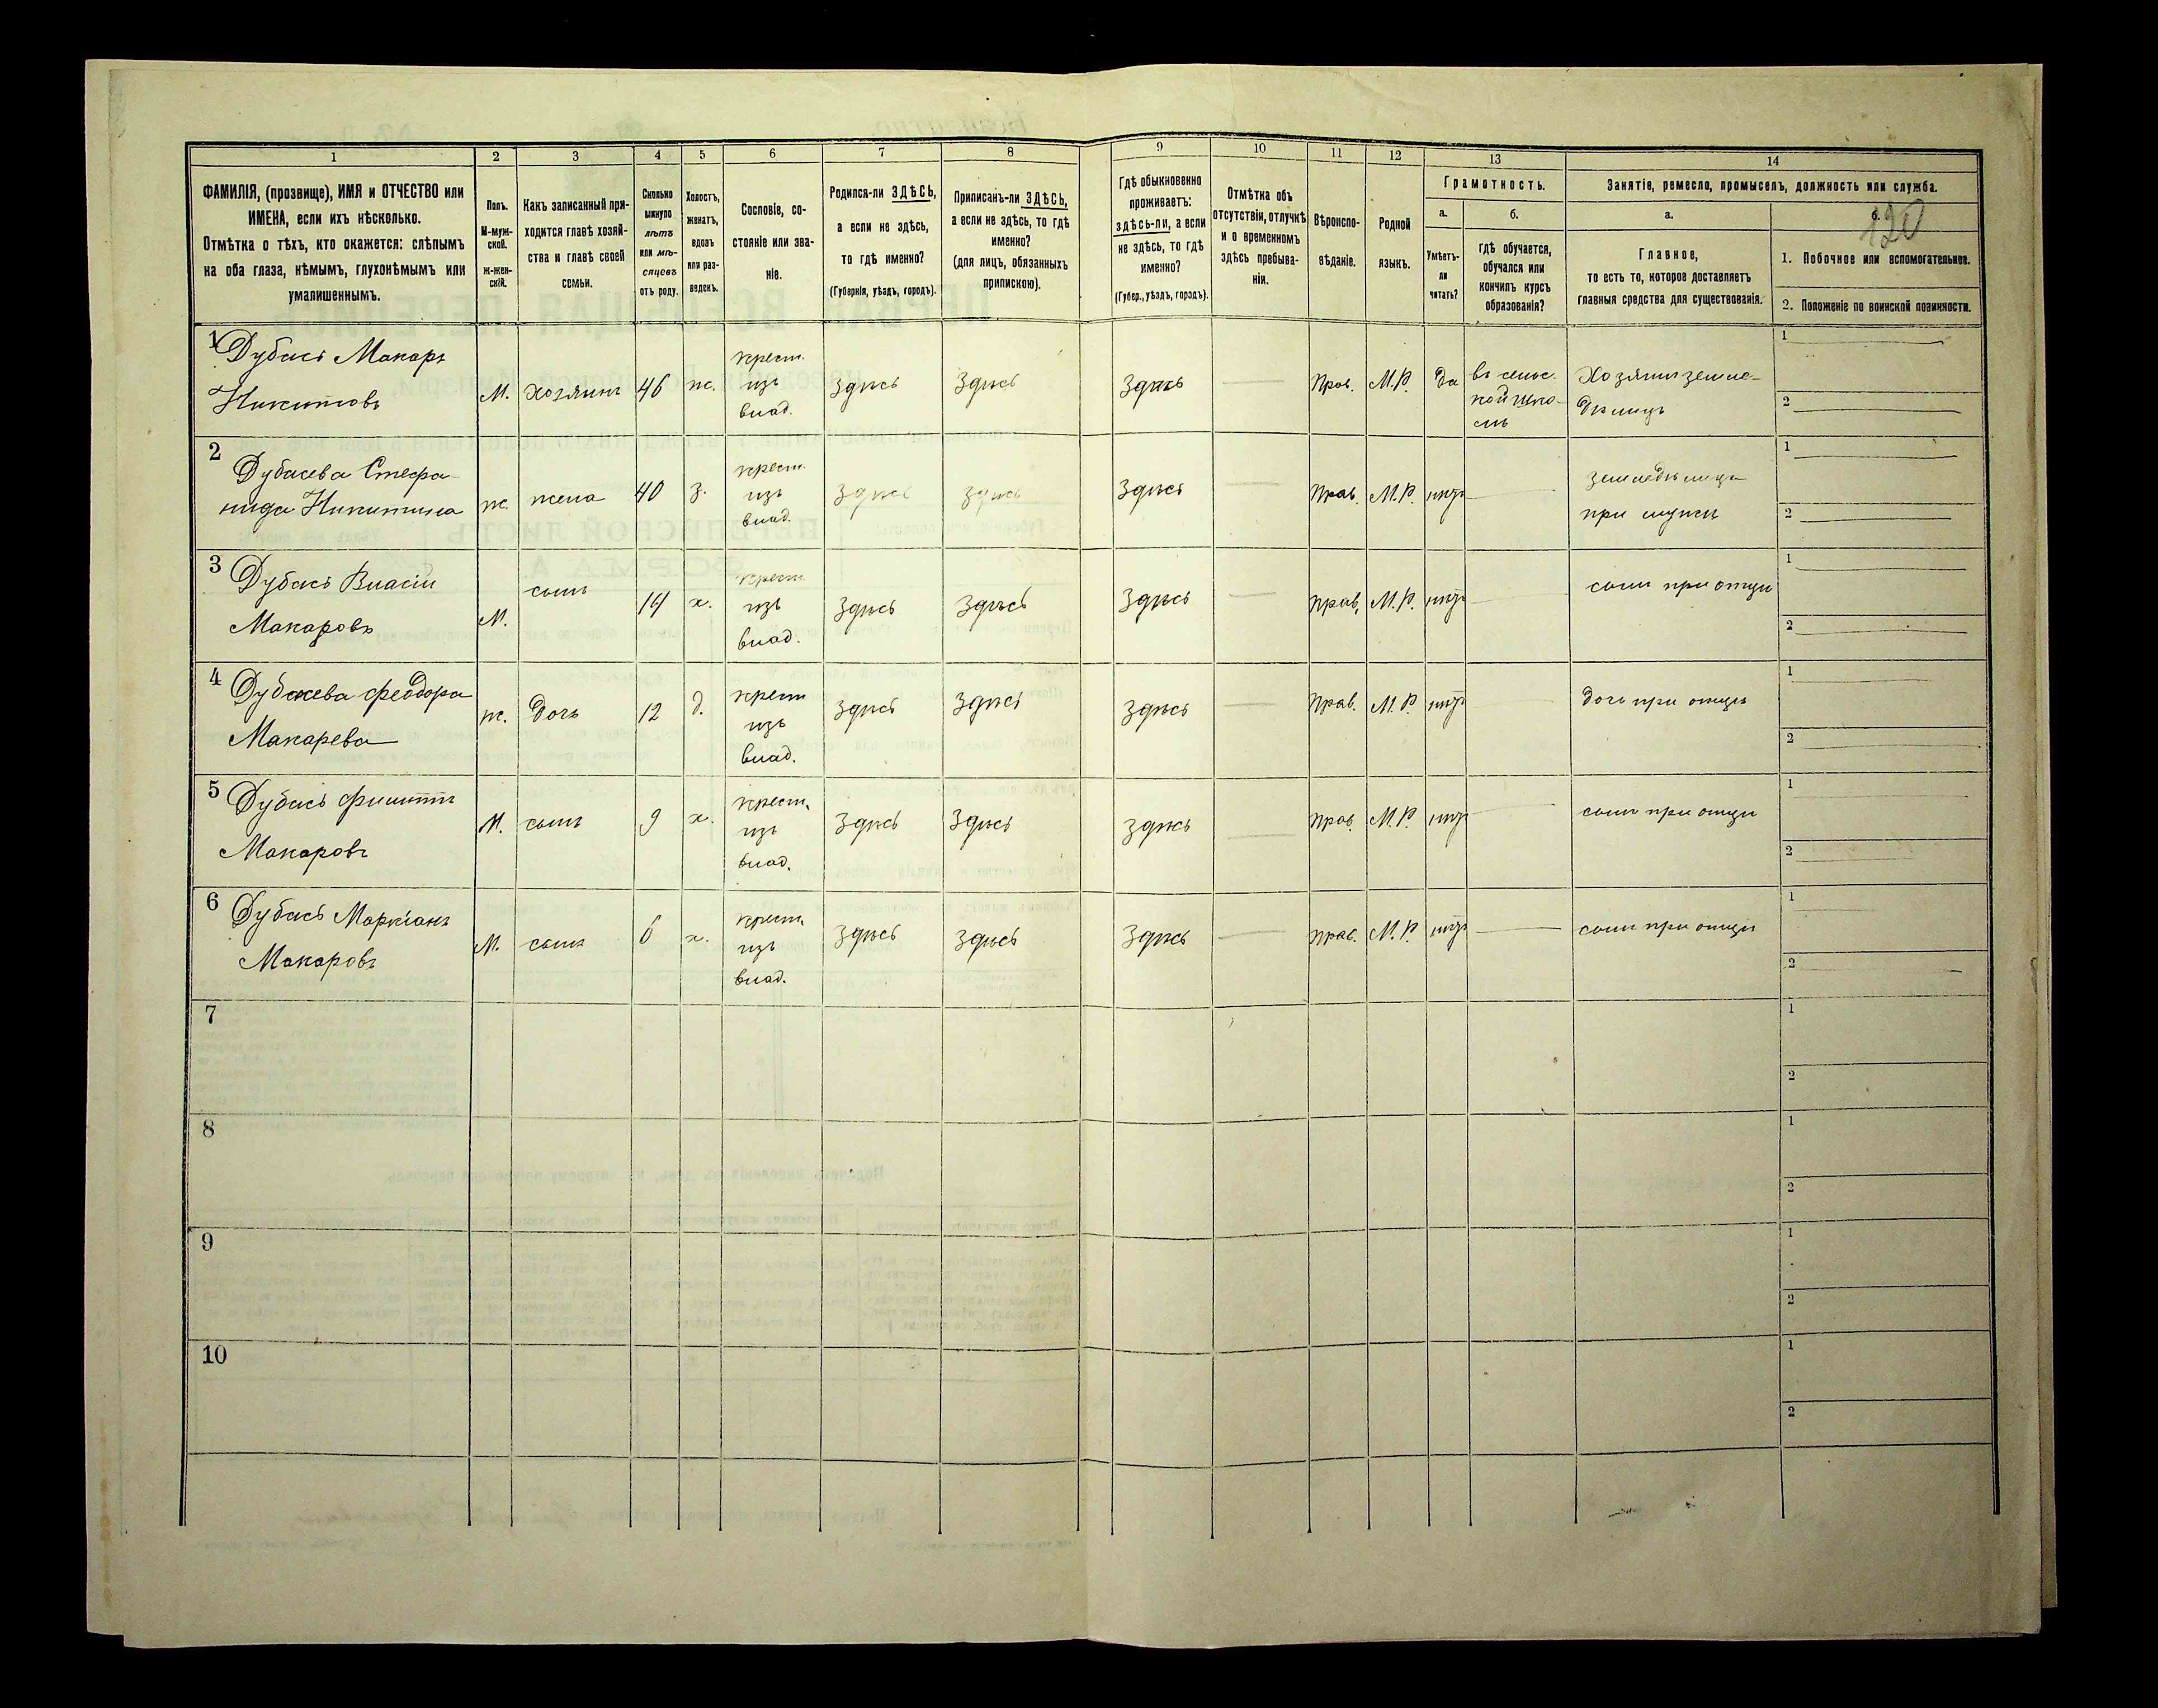 1
2
3
4
5
6
7
8
9
10
11
12
13
14
ФАМИЛІЯ, (прозвище), ИМЯ и ОТЧЕСТВО или
ИМЕНА, если ихъ нѣсколько.
Отмѣтка о тѣхъ, кто окажется: слѣпымъ
на оба глаза, нѣмымъ, глухонѣмымъ или
умалишеннымъ.
Полъ.
М-муж-
ской.
ж-жен-
скій.
Какъ записанный при-
ходится главѣ хозяй-
ства и главѣ своей
семьи.
Сколько
минуло
лѣтъ
или мѣ-
сяцевъ
отъ роду.
Холостъ,
женатъ,
вдовъ
или раз-
веденъ.
Сословіе, со-
стояніе или зва-
ніе.
Родился-ли ЗДѢСЬ,
а если не здѣсь,
то гдѣ именно?
(Губернія, уѣздъ, городъ).
Приписанъ-ли ЗДѢСЬ,
а если не здѣсь, то гдѣ
именно?
(для лицъ, обязанныхъ
припискою).
Гдѣ обыкновенно
проживаетъ:
здѣсь-ли, а если
не здѣсь, то гдѣ
именно?
(Губер., уѣздъ, городъ).
Отмѣтка объ
отсутствіи, отлучкѣ
и о временномъ
здѣсь пребыва-
ніи.
Вѣроиспо-
вѣданіе.
Родной
языкъ.
Грамотность.
а.
б.
Умѣетъ-
ли
читать?
гдѣ обучается,
обучался или
кончилъ курсъ
образованія?
Занятіе, ремесло, промыселъ, должность или служба.
а.
б.
120
Главное,
то есть то, которое доставляетъ
главныя средства для существованія.
1. Побочное или вспомогательное.
2. Положеніе по воинской повинности.
1 Дубасъ Макаръ
Никитовъ
М. хозяинъ 46 ж.
крест.
изъ
влад.
Здѣсь Здѣсь Здѣсь Прав. М.Р. Да
въ сельс.
кой шко-
лѣ
Хозяинъ земле-
дѣлицъ
1
2
2 Дубасева Стефа-
нида Никитина
ж. жена 40 з.
крест.
изъ
влад.
Здѣсь Здѣсь Здѣсь Прав. М.Р. нѣтъ
земледѣлица
при мужѣ
1
2
3 Дубасъ Власій
Макаровъ
М. сынъ 14 х.
крест.
изъ
влад.
Здѣсь Здѣсь Здѣсь Прав. М.Р. нѣтъ сынъ при отцѣ
1
2
4 Дубасева Феодора
Макарева
ж. дочь 12 д.
крест
изъ
влад.
Здѣсь Здѣсь Здѣсь Прав. М.Р. нѣтъ дочь при отцѣ
1
2
5 Дубасъ Филиппъ
Макаровъ
М. сынъ 9 х.
крест.
изъ
влад.
Здѣсь Здѣсь Здѣсь Прав. М.Р. нѣтъ сынъ при отцѣ
1
2
6 Дубасъ Маркіанъ
Макаровъ
М. сынъ 6 х.
крест.
изъ
влад.
Здѣсь Здѣсь Здѣсь Прав. М.Р. нѣтъ сынъ при отцѣ
1
2
7
1
2
8
1
2
9
1
2
10
1
2